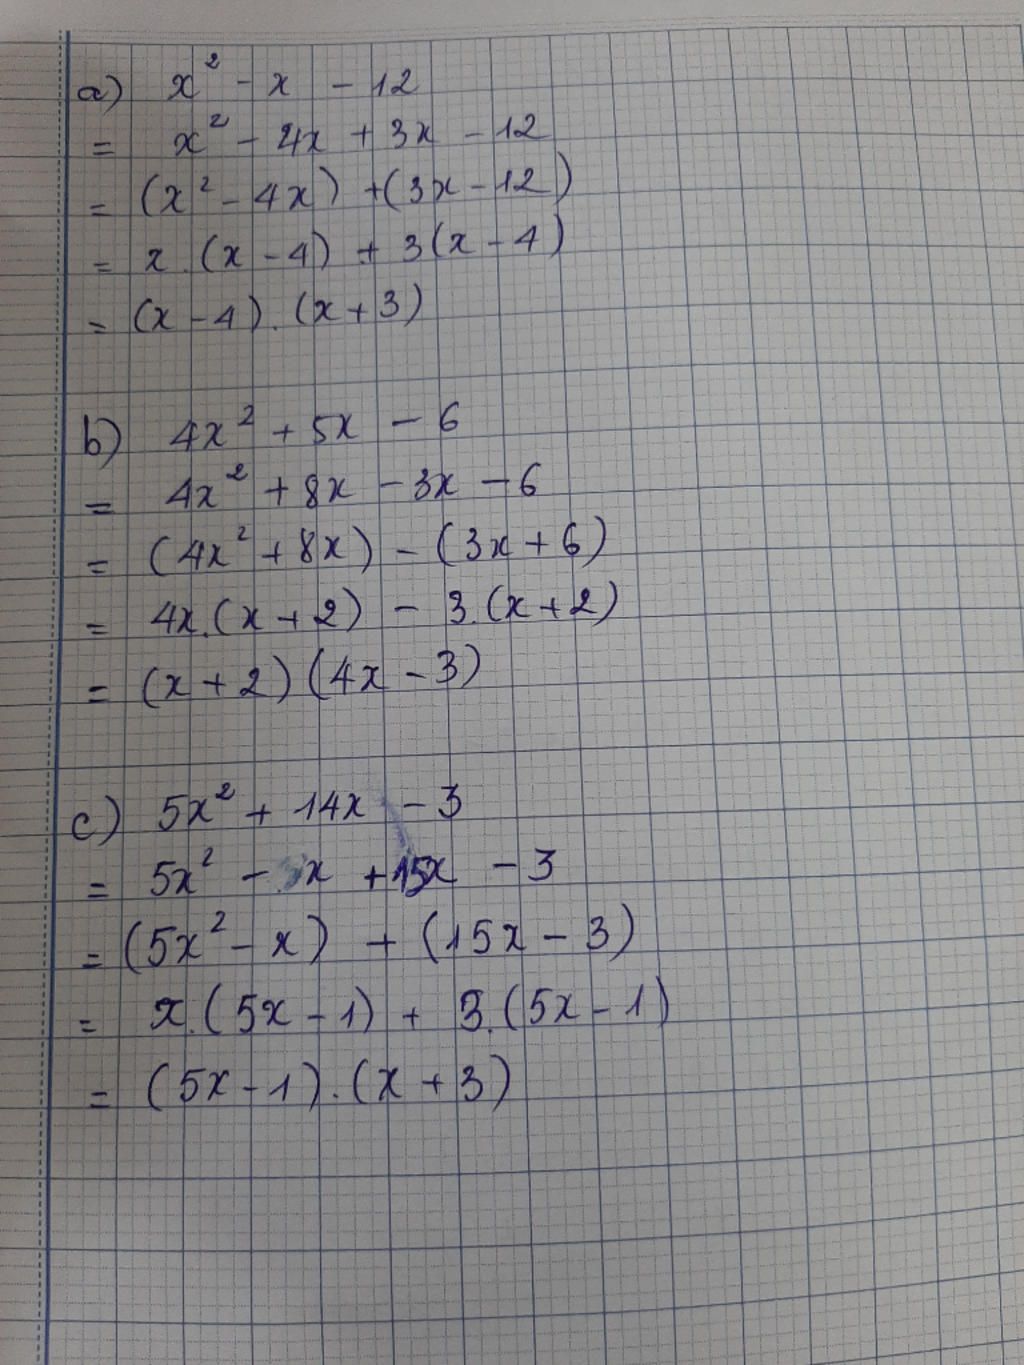 a) x² - x - 12
= x² - 4x + 3x - 12
= (x² - 4x) + (3x - 12)
= x.(x - 4) + 3(x - 4)
= (x - 4).(x + 3)
b) 4x² + 5x - 6
= 4x² + 8x - 3x - 6
= (4x² + 8x) - (3x + 6)
= 4x.(x + 2) - 3.(x + 2)
= (x + 2)(4x - 3)
c) 5x² + 14x - 3
= 5x² - x + 15x - 3
= (5x² - x) + (15x - 3)
= x.(5x - 1) + 3.(5x - 1)
= (5x - 1).(x + 3)